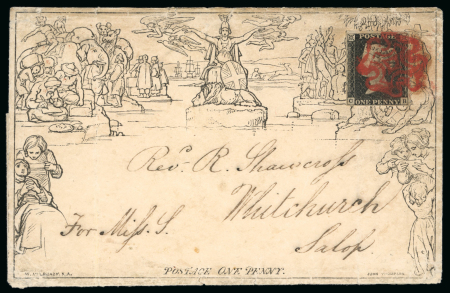 POSTAGE
ONE PENNY
Revd. R. Shawcross
Whitchurch
For Miss. S.
Salop
POSTAGE ONE PENNY.
W. MULREADY, R.A.